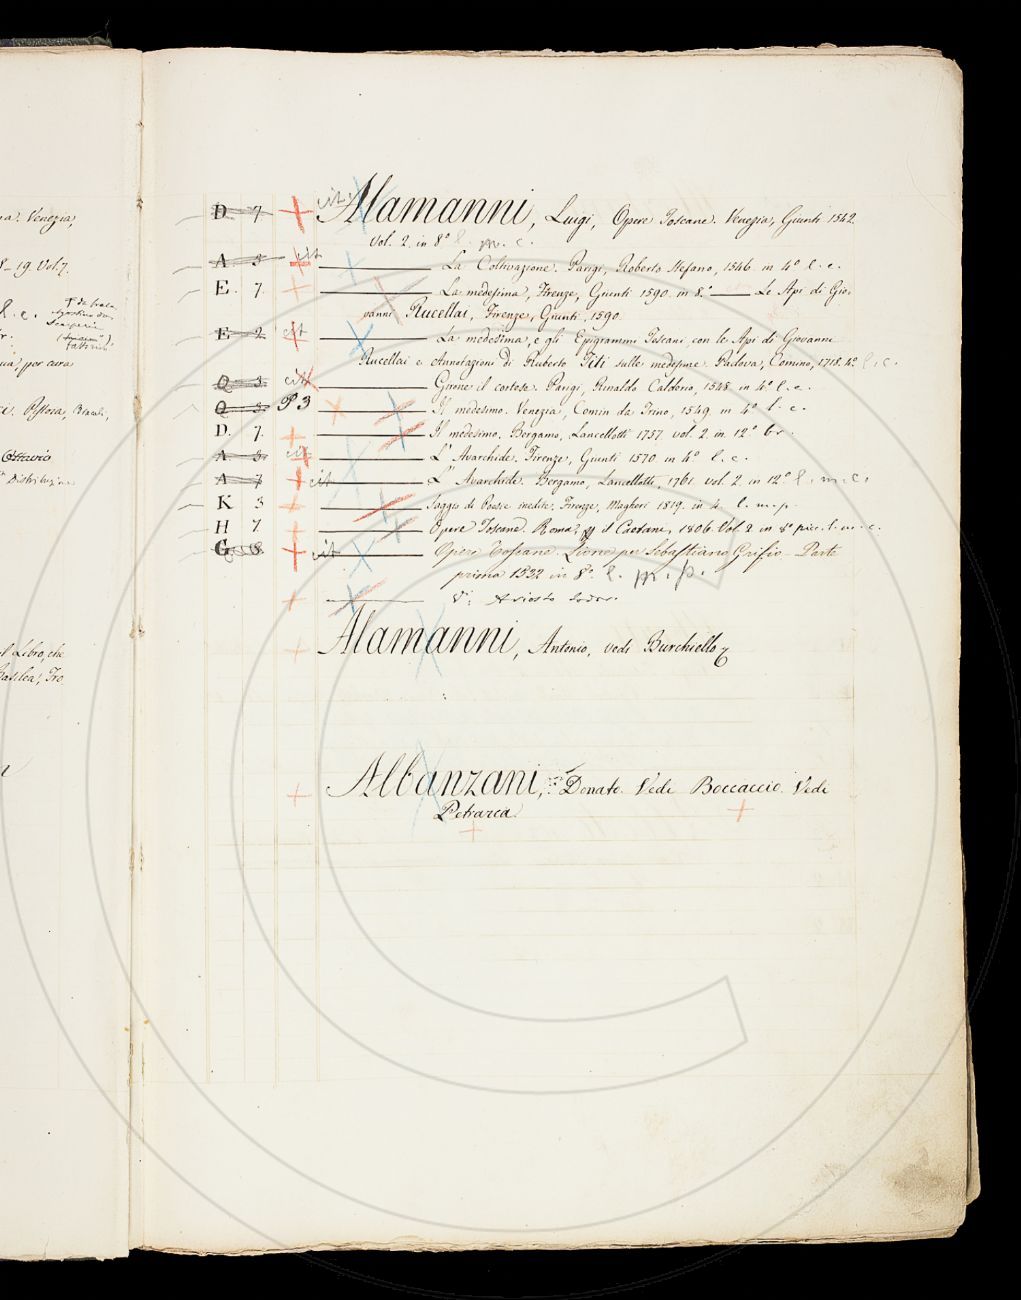 a. Venezia,
8-19. Vol. 7.
l. c.
per cura
Ottavio
Distribuzione
l Libro, che
Basilea, Fro
D 7. cit. Alamanni, Luigi, Opere Toscane. Venezia, Giunti 1542.
Vol. 2. in 8.° l. m. c.
A 5 cit La Coltivazione. Parigi, Roberto Stefano, 1546. in 4.° l. c.
E. 7. La medesima, Firenze, Giunti 1590. in 8.° Le Api di Gio.
vanni Rucellai, Firenze, Giunti, 1590.
E 2 cit La medesima, e gli Epigrammi Toscani, con le Api di Giovanni
Rucellai e Annotazioni di Ruberto Titi sulle medesime. Padova, Comino, 1718. 4.° l. c.
Q 3. cit Girone il cortese. Parigi, Rinaldo Calderio, 1548. in 4.° l. c.
Q 5 P 3 Il medesimo. Venezia, Comin da Trino, 1549. in 4.° l. c.
D. 7. Il medesimo. Bergamo, Lancellotti 1757. vol. 2. in 12.° br.
A 5 cit L'Avarchide. Firenze, Giunti 1570. in 4.° l. c.
A 7 cit L'Avarchide. Bergamo, Lancellotti, 1761. vol. 2. in 12.° l. m. c.
K 3 Saggio di Poesie inedite. Firenze, Magheri 1819. in 4. l. m. p.
H 7 Opere Toscane. Roma, il Caetani, 1806. Vol. 2. in 8.° picc. l. m. c.
G 8. cit Opere Toscane. Lione per Sebastiano Grifio. Parte
prima 1532 in 8.° l. m. p.
V. Ariosto
Alamanni, Antonio, vedi Burchiello
Albanzani, Donato. Vedi Boccaccio. Vedi
Petrarca